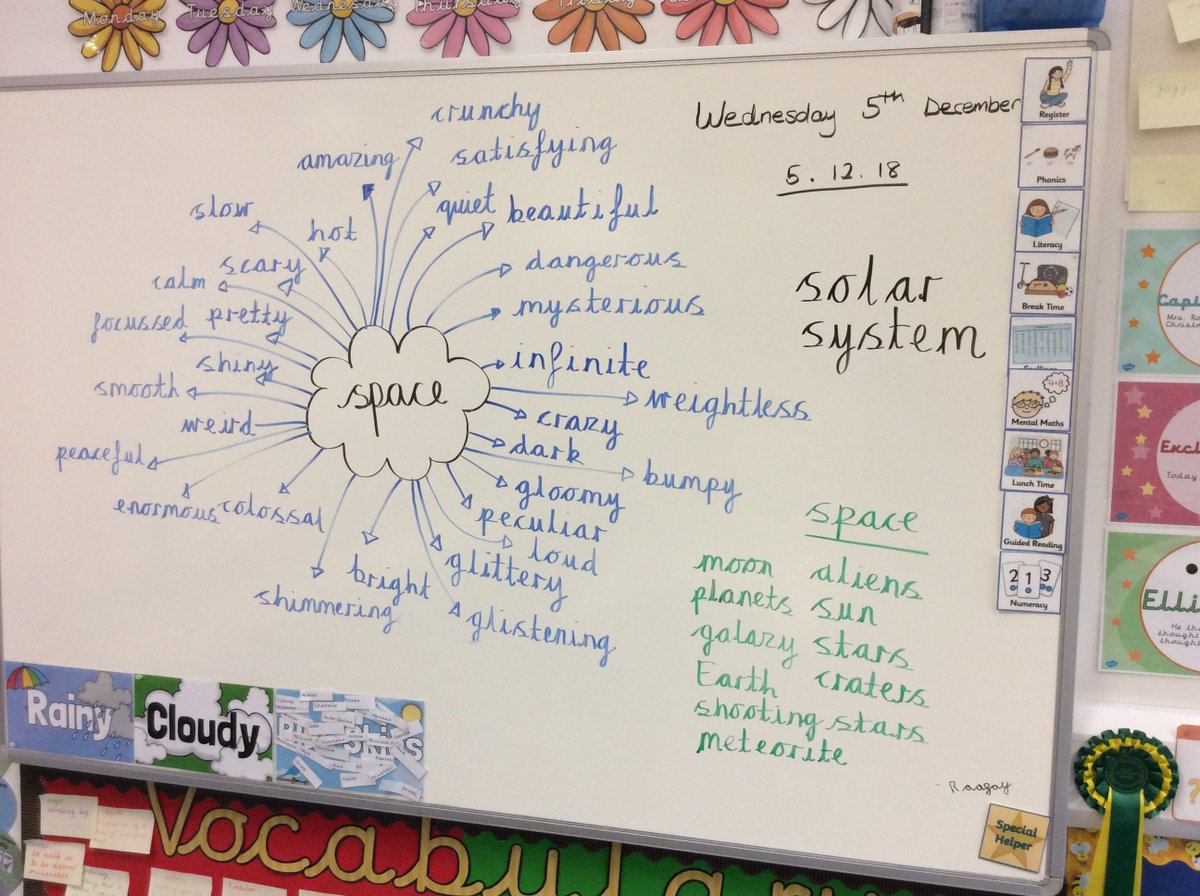 Monday
Tuesday
Wednesday
Thursday
Friday
Wednesday 5th December
5.12.18
solar
system
crunchy
satisfying
amazing
quiet
beautiful
slow
hot
dangerous
calm
scary
mysterious
focussed
pretty
infinite
shiny
smooth
weightless
weird
crazy
dark
peaceful
bumpy
gloomy
enormous
colossal
peculiar
loud
glittery
bright
shimmering
glistening
space
space
moon aliens
planets sun
galaxy stars
Earth craters
shooting stars
meteorite
Register
Phonics
Literacy
Break Time
Mental Maths
4×8
Lunch Time
Guided Reading
2 1 3
Numeracy
Special
Helper
Rainy
Cloudy
Vocabulary
Today
He
thought